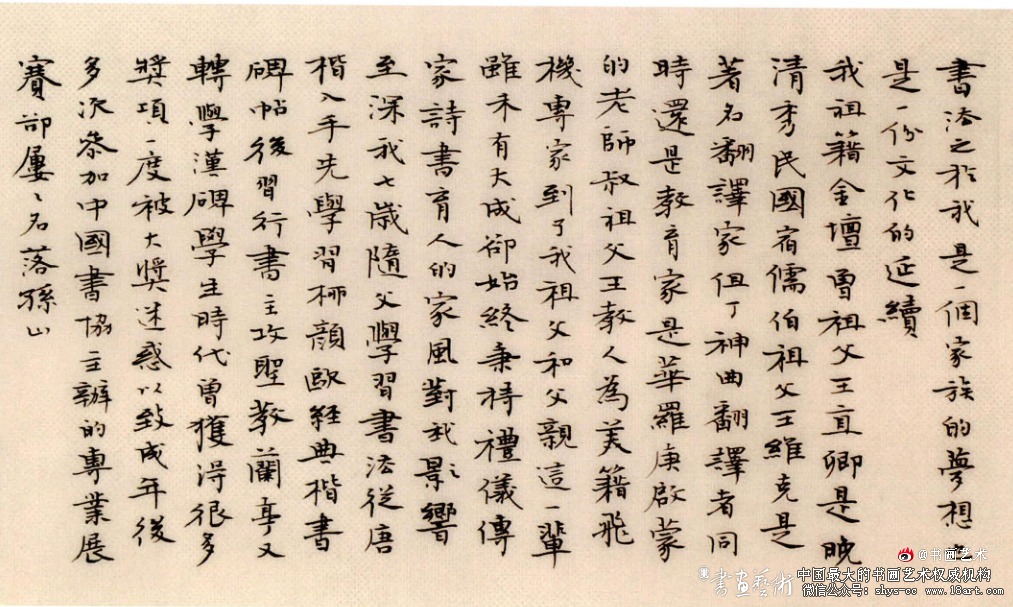 書法之於我是一個家族的夢想也
是一份文化的延續
我祖籍金壇曾祖父王直卿是晚
清秀民國宿儒伯祖父王維克是
著名翻譯家但丁神曲翻譯者同
時還是教育家是華羅庚啟蒙
的老師叔祖父王教人為美籍飛
機專家到了我祖父和父親這一輩
雖未有大成卻始終秉持禮儀傳
家詩書育人的家風對我影響
至深我七歲隨父學習書法從唐
楷入手先學習柳顏歐經典楷書
碑帖後習行書主攻聖教蘭亭又
轉學漢碑學生時代曾獲得很多
獎項一度被大獎迷惑以致成年後
多次參加中國書協主辦的專業展
賽卻屢屢名落孫山
@书画艺术
書畫藝術
中国最大的书画艺术权威机构
微信公众号: shys-cc www.18art.com